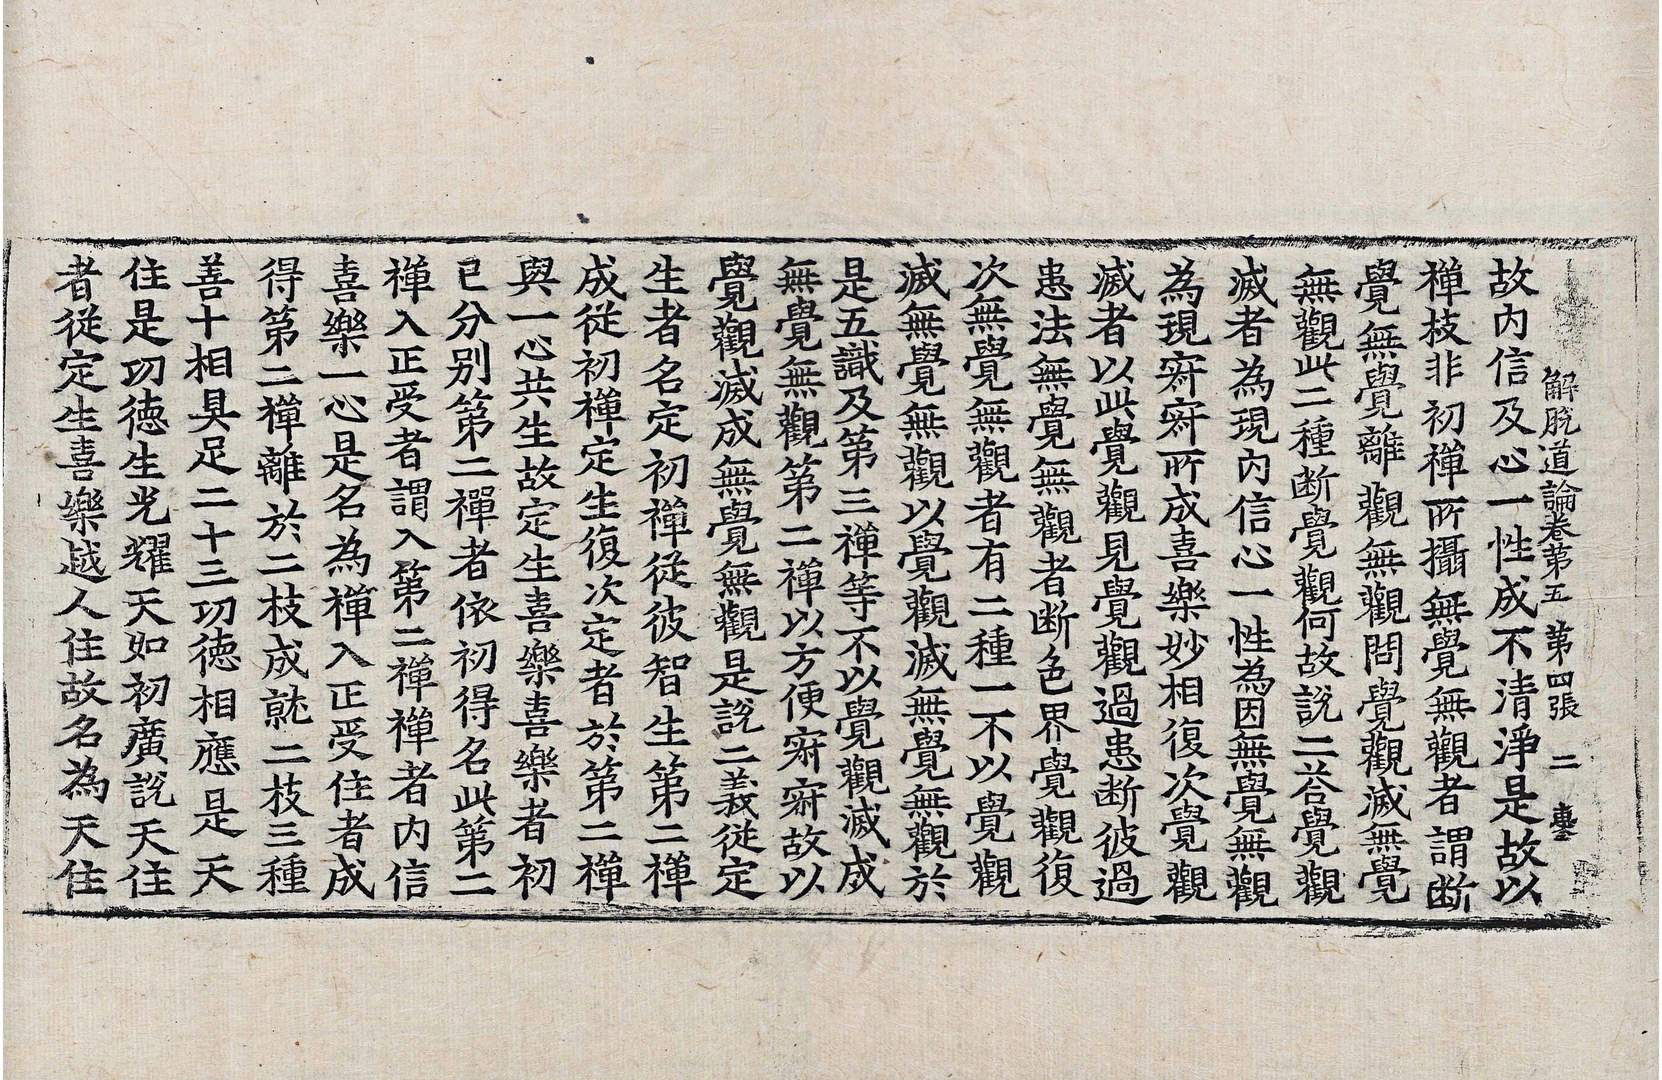 解脫道論卷第五 第四張 二
故內信及心一性成不清淨是故以
禅枝非初禅所攝無覺無觀者謂断
覺無覺離觀無觀問覺觀滅無覺
無觀此二種断覺觀何故説二荅覺觀
滅者為現內信心一性為因無覺無觀
為現𡧯𡧯所成喜樂妙相復次覺觀
滅者以此覺觀見覺觀過患断彼過
患法無覺無觀者断色界覺觀復
次無覺無觀者有二種一不以覺觀
滅無覺無觀以覺觀滅無覺無觀於
是五識及第三禅等不以覺觀滅成
無覺無觀第二禅以方便𡧯𡧯故以
覺觀滅成無覺無觀是説二義從定
生者名定初禅從彼智生第二禅
成從初禅定生復次定者於第二禅
與一心共生故定生喜樂喜樂者初
已分別第二禅者依初得名此第二
禅入正受者謂入第二禅禅者內信
喜樂一心是名為禅入正受住者成
得第二禅離於二枝成就二枝三種
善十相具足二十三功徳相應是天
住是功徳生光耀天如初廣説天住
者從定生喜樂越人住故名為天住